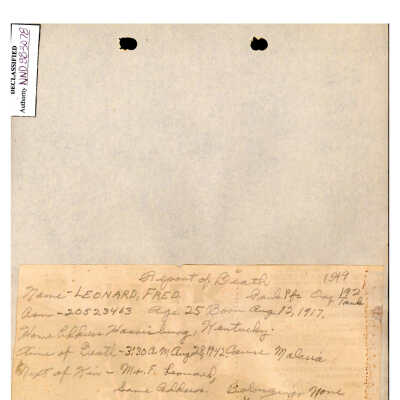 DECLASSIFIED
Authority NND 883078
1949
Report of Death
Name - LEONARD, FRED. Rank Pfc Org 192 Tank
Asn - 20523463 Age 25 Born Aug 12, 1917.
Home Address Harrisburg, Kentucky.
Time of Death - 3:30 A M Aug 28, 1942 Cause Malaria
Next of Kin - Mr. F. Leonard,
Same Address. Belongings None